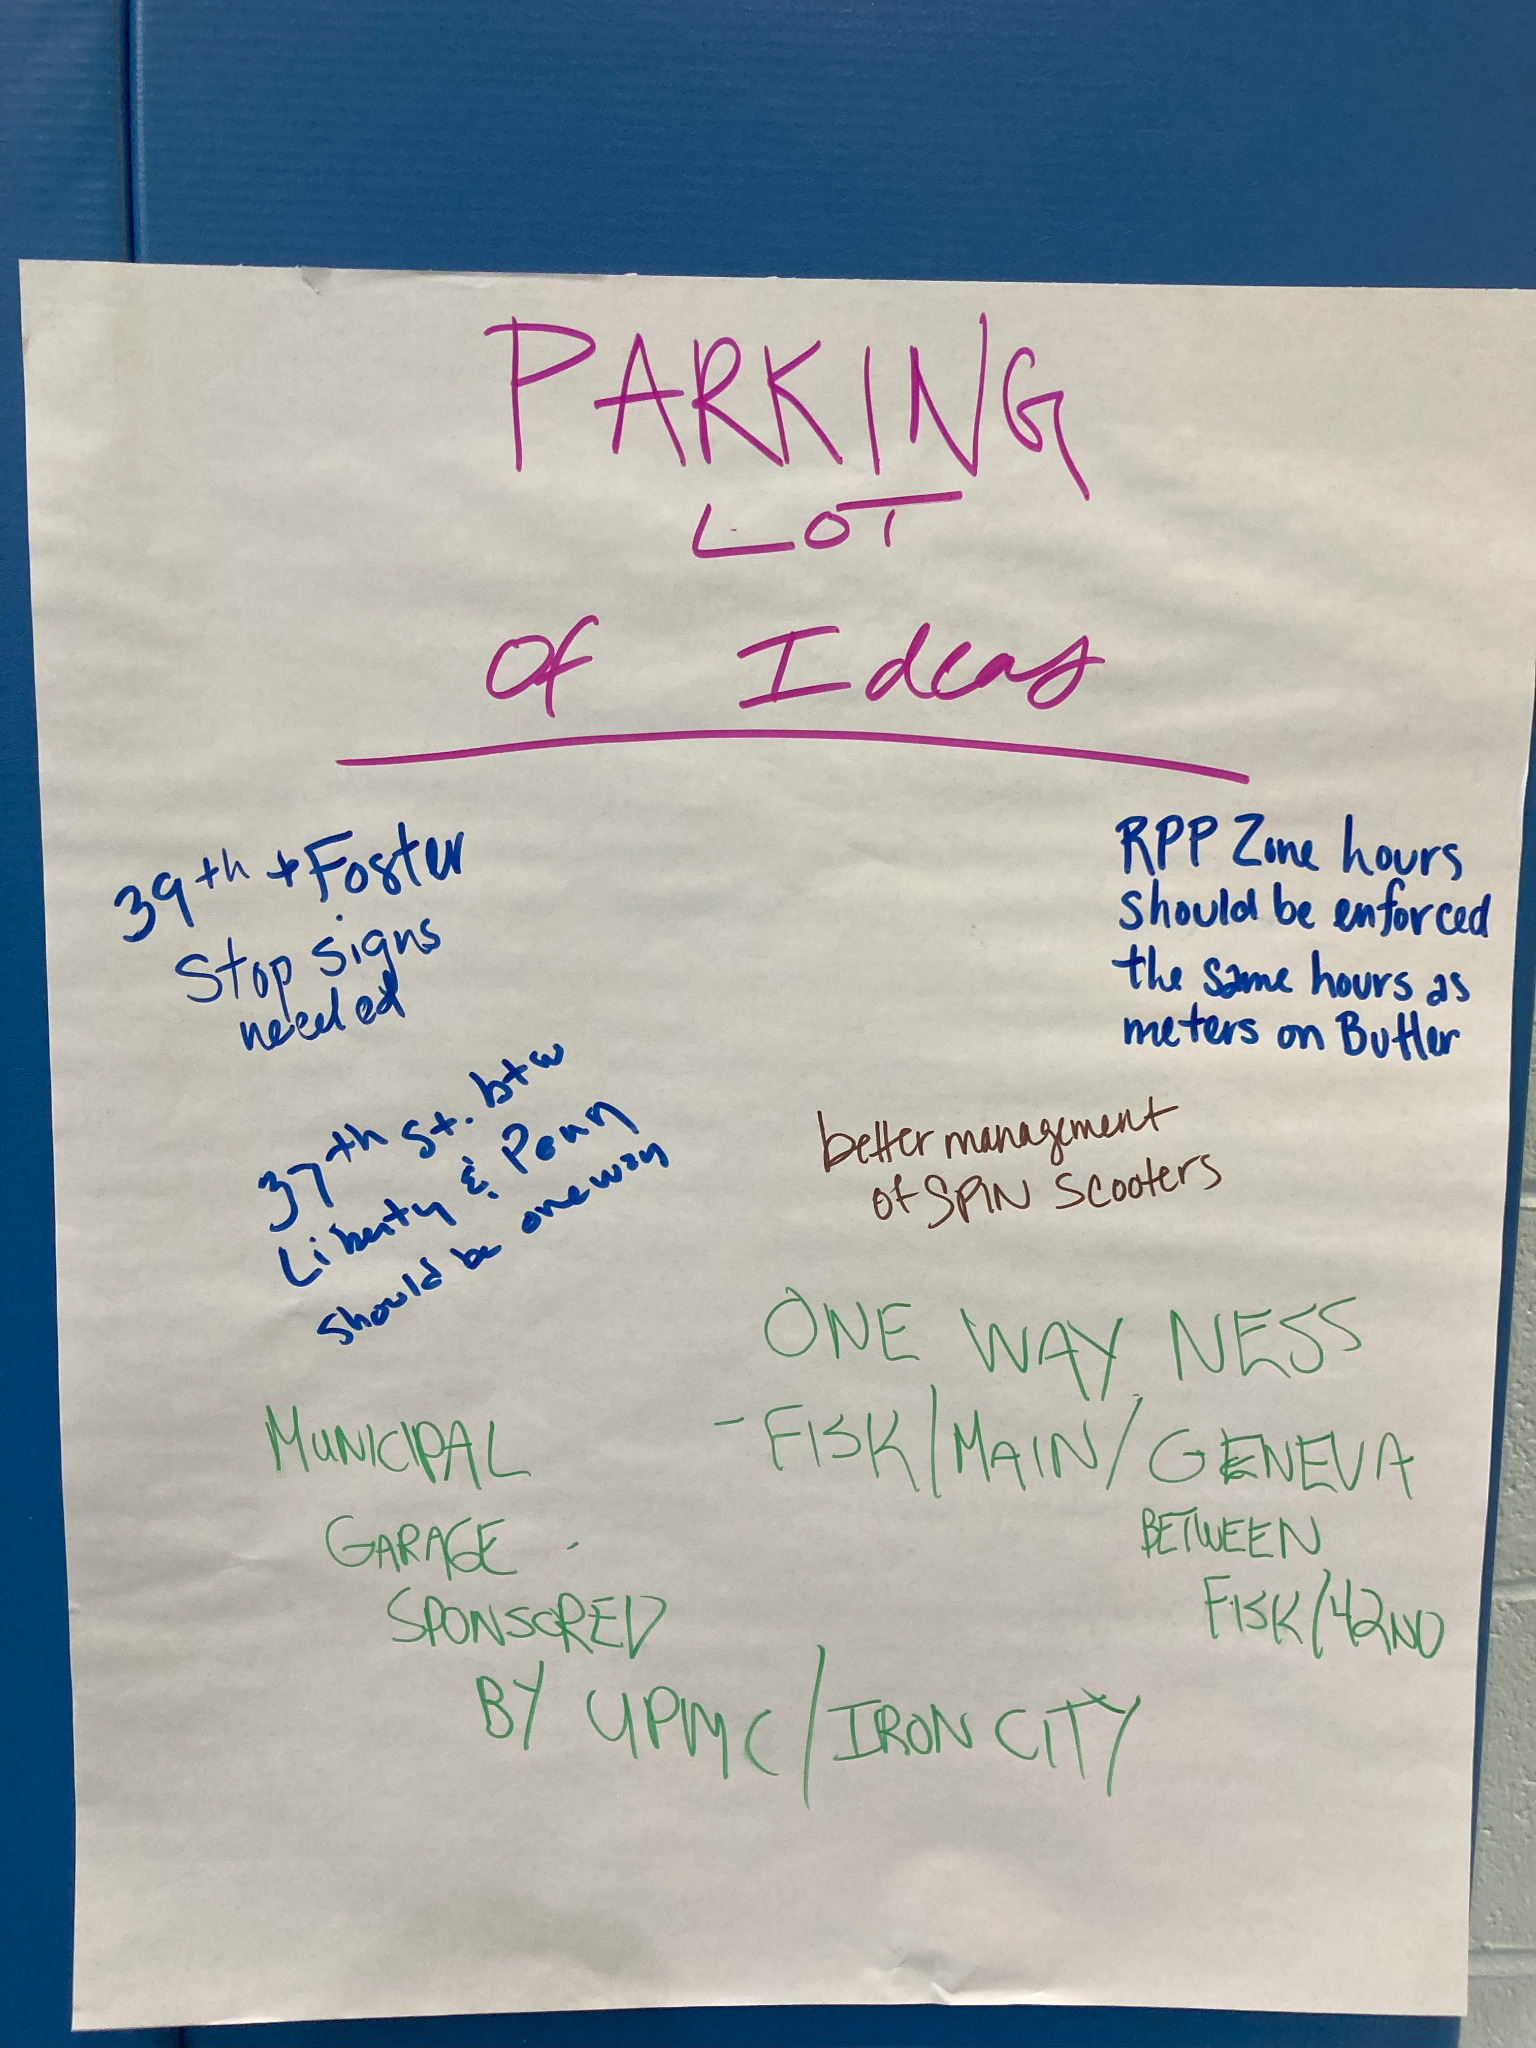 PARKING
LOT
of Ideas
39th + Foster
Stop signs
needed
RPP Zone hours
should be enforced
the same hours as
meters on Butler
37th St. btw
Liberty & Penn
should be one way
better management
of SPIN Scooters
ONE WAY NESS
- FISK/MAIN/GENEVA
BETWEEN
FISK/42ND
MUNICIPAL
GARAGE
SPONSORED
BY UPMC/IRON CITY